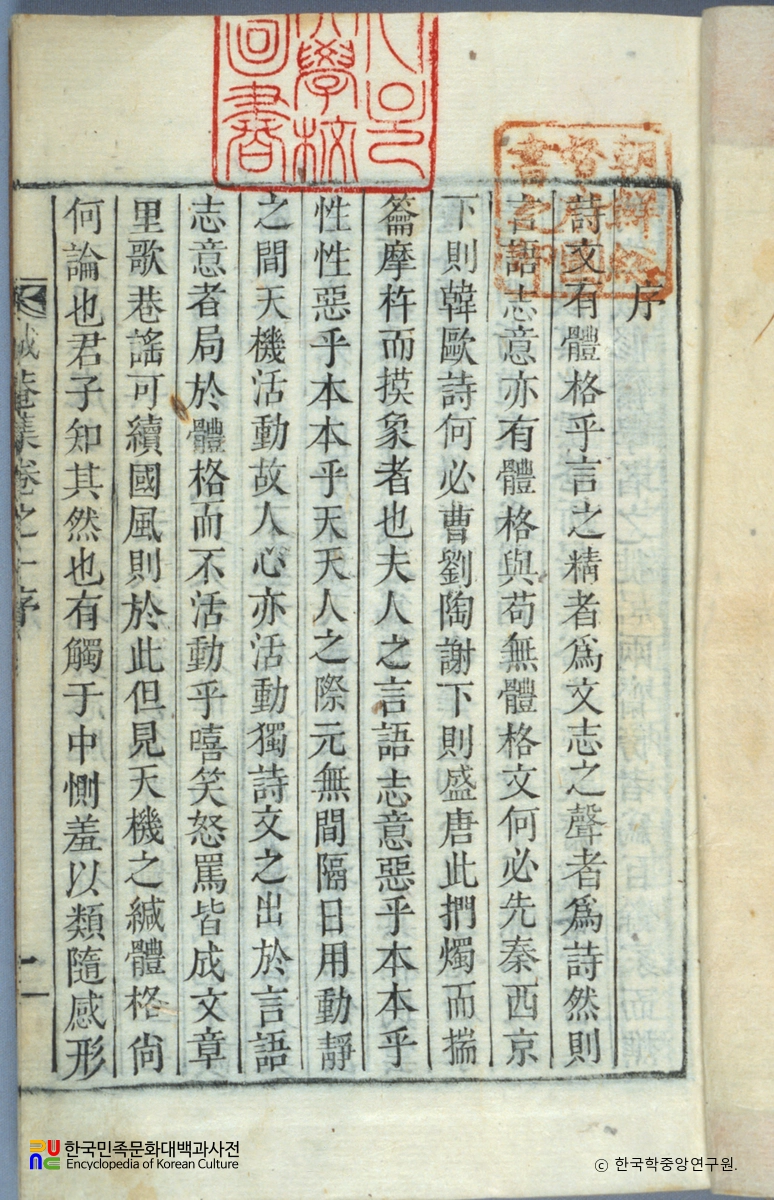 序
詩文有體格乎言之精者爲文志之聲者爲詩然則
言語志意亦有體格與苟無體格文何必先秦西京
下則韓歐詩何必曹劉陶謝下則盛唐此捫燭而揣
籥摩杵而摸象者也夫人之言語志意惡乎本本乎
性性惡乎本本乎天天人之際元無間隔日用動靜
之間天機活動故人心亦活動獨詩文之出於言語
志意者局於體格而不活動乎嘻笑怒罵皆成文章
里歌巷謠可續國風則於此但見天機之緘體格尙
何論也君子知其然也有觸于中惻羞以類隨感形
緘菴集卷之一序
二
學校
圖書
朝鮮總
督府圖
書之印
한국민족문화대백과사전
Encyclopedia of Korean Culture
© 한국학중앙연구원.